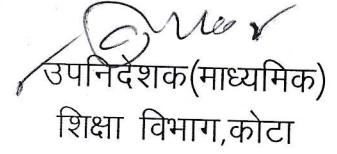 उपनिदेशक(माध्यमिक)
शिक्षा विभाग,कोटा